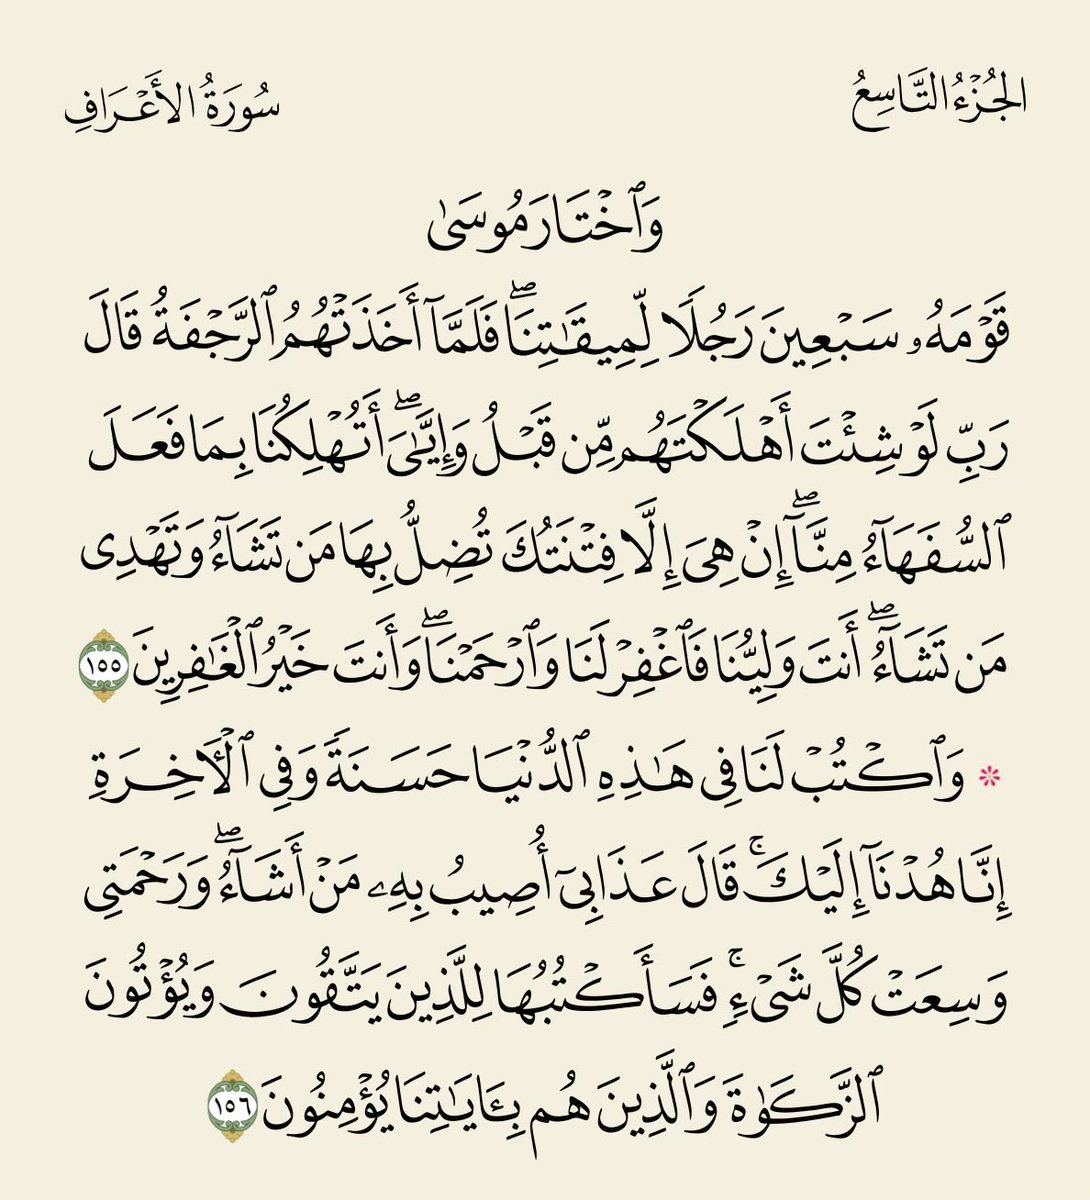 الجُزْءُ التَّاسِعُ
سُورَةُ الأَعْرَافِ
وَٱخْتَارَ مُوسَىٰ
قَوْمَهُۥ سَبْعِينَ رَجُلًا لِّمِيقَٰتِنَاۖ فَلَمَّآ أَخَذَتْهُمُ ٱلرَّجْفَةُ قَالَ
رَبِّ لَوْ شِئْتَ أَهْلَكْتَهُم مِّن قَبْلُ وَإِيَّٰىَۖ أَتُهْلِكُنَا بِمَا فَعَلَ
ٱلسُّفَهَآءُ مِنَّآۖ إِنْ هِىَ إِلَّا فِتْنَتُكَ تُضِلُّ بِهَا مَن تَشَآءُ وَتَهْدِى
مَن تَشَآءُۖ أَنتَ وَلِيُّنَا فَٱغْفِرْ لَنَا وَٱرْحَمْنَاۖ وَأَنتَ خَيْرُ ٱلْغَٰفِرِينَ ١٥٥
* وَٱكْتُبْ لَنَا فِى هَٰذِهِ ٱلدُّنْيَا حَسَنَةً وَفِى ٱلْءَاخِرَةِ
إِنَّا هُدْنَآ إِلَيْكَۚ قَالَ عَذَابِىٓ أُصِيبُ بِهِۦ مَنْ أَشَآءُۖ وَرَحْمَتِى
وَسِعَتْ كُلَّ شَىْءٍۚ فَسَأَكْتُبُهَا لِلَّذِينَ يَتَّقُونَ وَيُؤْتُونَ
ٱلزَّكَوٰةَ وَٱلَّذِينَ هُم بِـَٔايَٰتِنَا يُؤْمِنُونَ ١٥٦